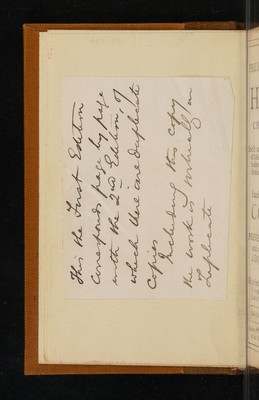 This the First Edition
corresponds page by page
with the 2nd Edition, of
which there are duplicate
copies
Including this copy
the work is virtually in
Triplicate